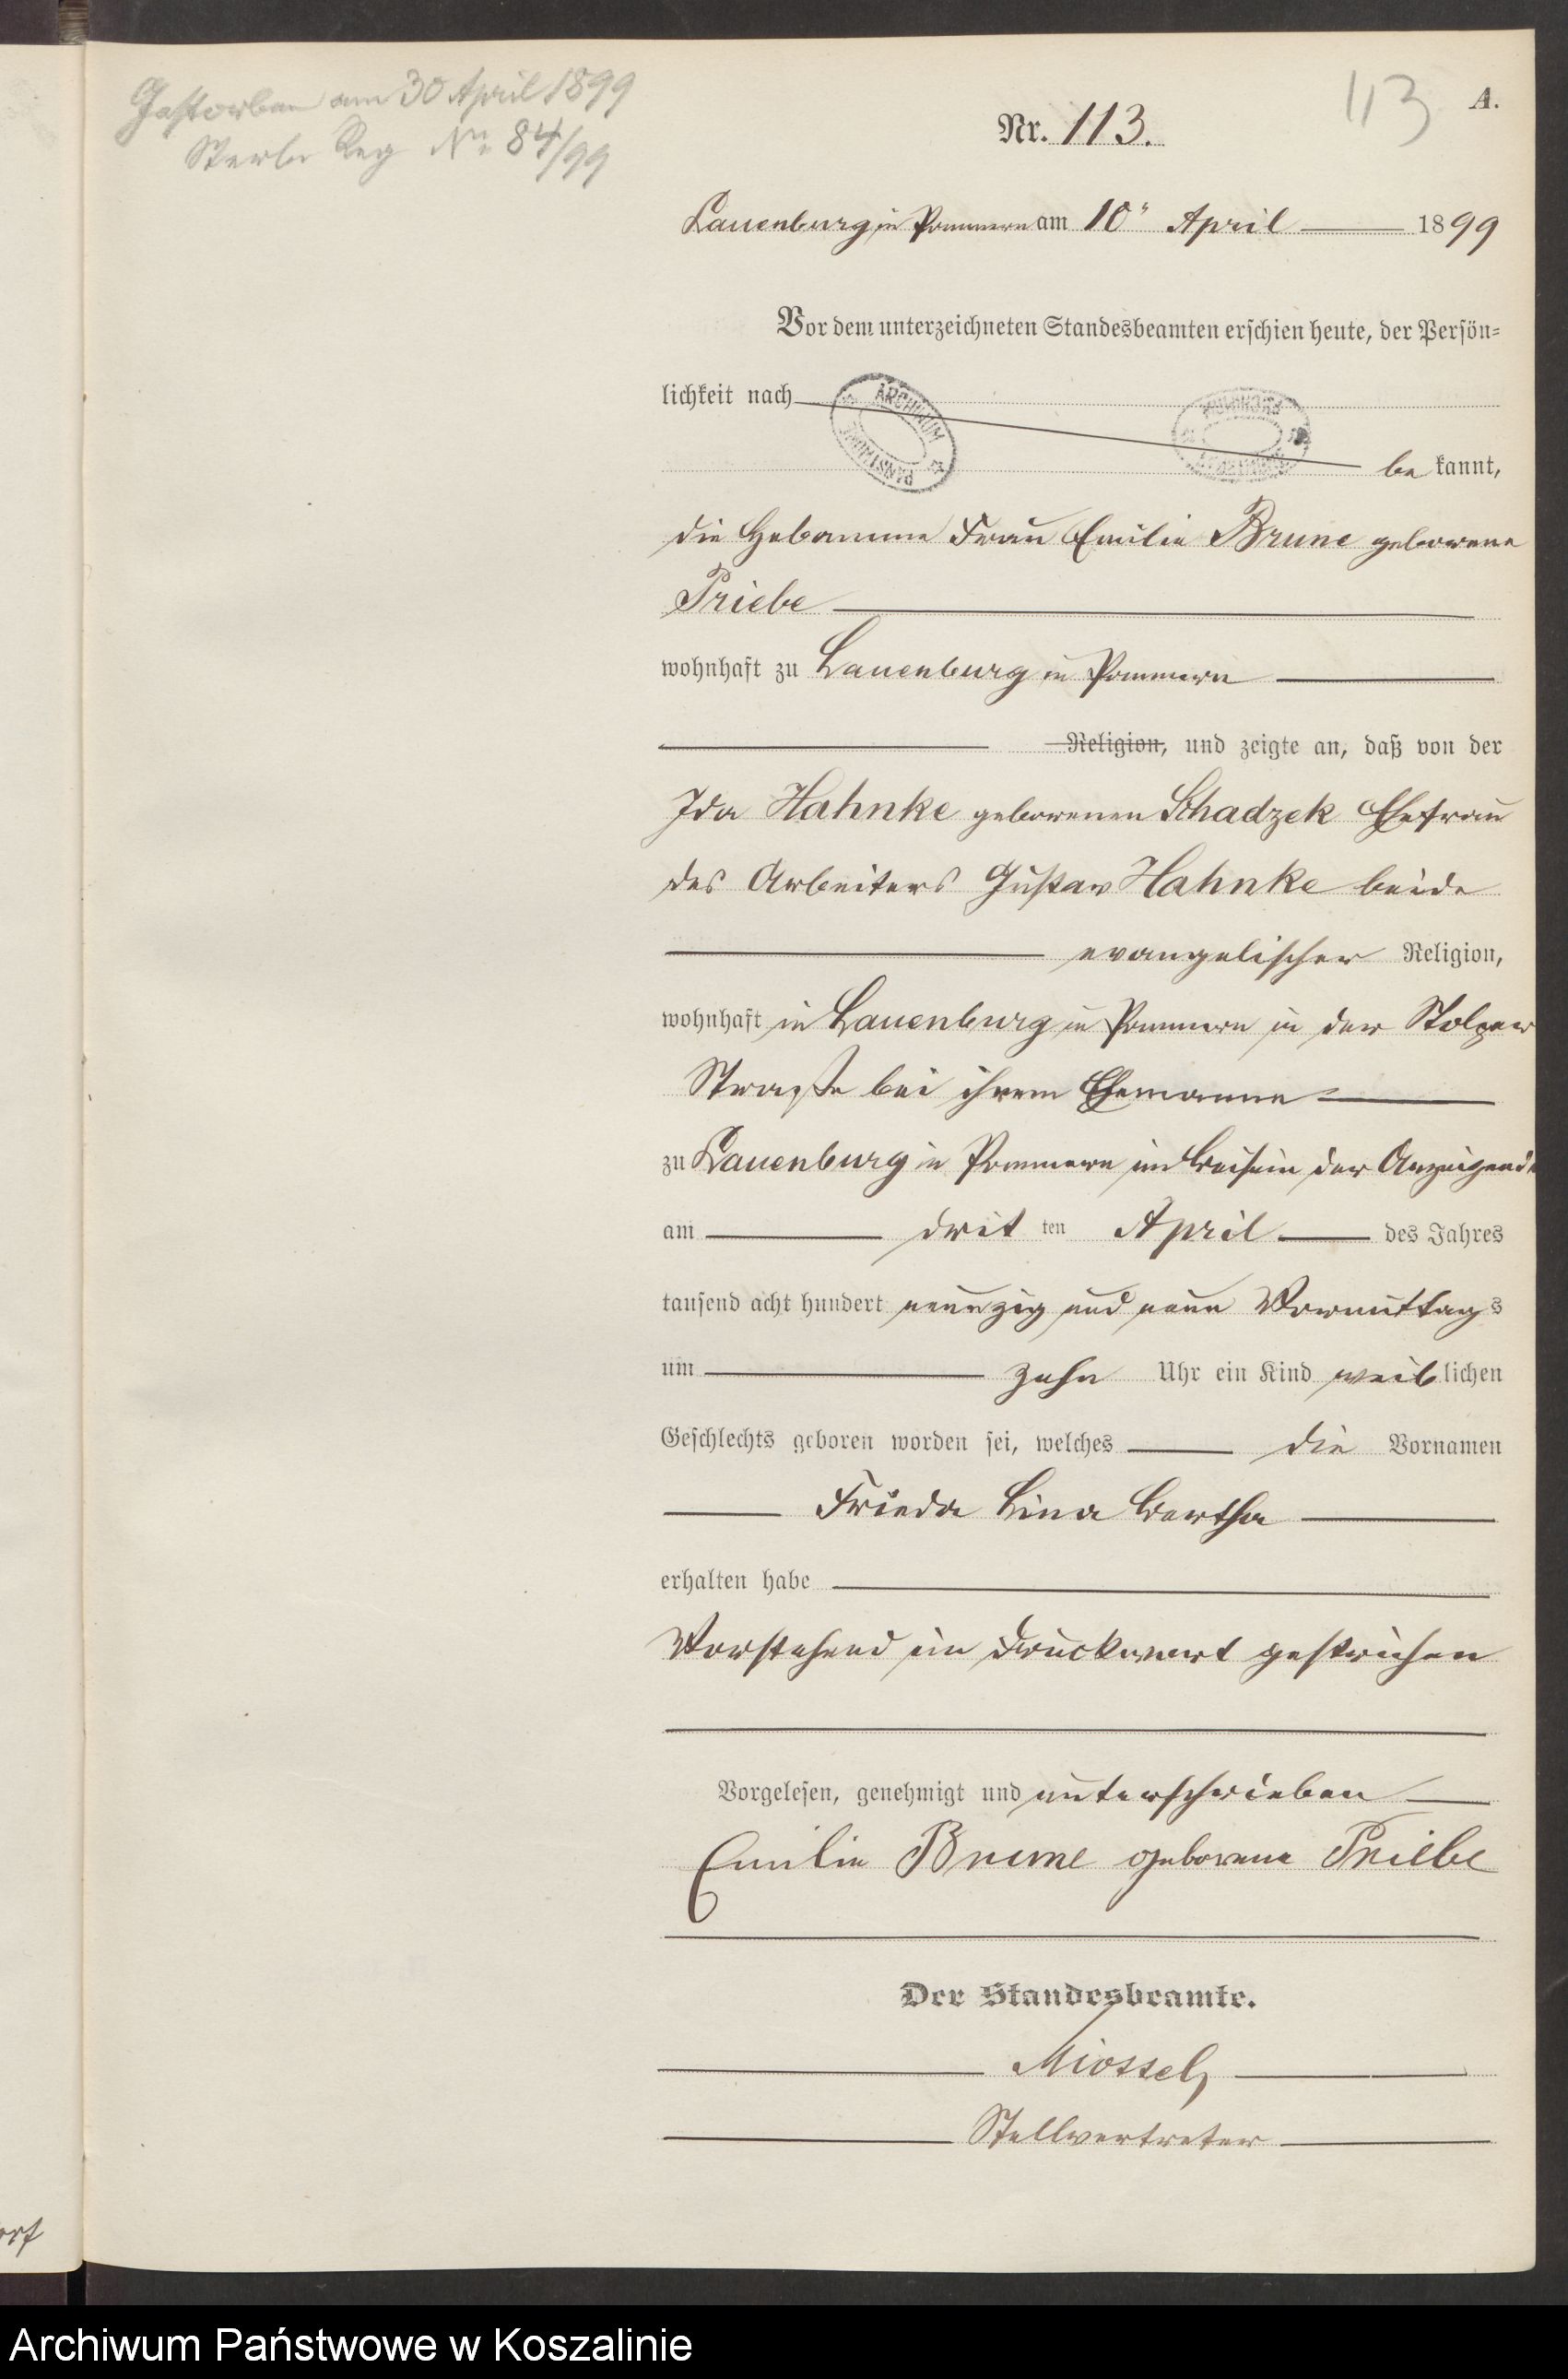 Gestorben am 30 April 1899
Sterbe Reg No 84/99
113
A.
Nr. 113.
Lauenburg in Pommern am 10" April 1899
Vor dem unterzeichneten Standesbeamten erschien heute, der Persön-
lichkeit nach
ARCHIWUM PAŃSTWOWE
bekannt,
die Hebamme Frau Emilie Brune geborene
Priebe
wohnhaft zu Lauenburg in Pommern
Religion, und zeigte an, daß von der
Ida Hahnke geborenen Schadzek Ehefrau
des Arbeiters Gustav Hahnke beide
evangelischer Religion,
wohnhaft in Lauenburg in Pommern in der Stolper
Straße bei ihrem Ehemanne
zu Lauenburg in Pommern im Beisein der Anzeigende
am dritten April des Jahres
tausend acht hundert neunzig und neun Vormittags
um zehn Uhr ein Kind weiblichen
Geschlechts geboren worden sei, welches die Vornamen
Frieda Lina Bertha
erhalten habe
Vorstehend ein Druckwort gestrichen
Vorgelesen, genehmigt und unterschrieben
Emilie Brune geborene Priebe
Der Standesbeamte.
Stellvertreter
Archiwum Państwowe w Koszalinie